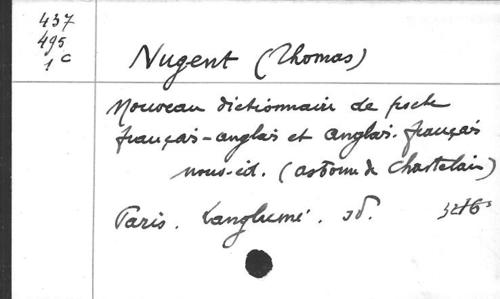 437
495
1 C
Nugent (Thomas)
Nouveau dictionnaire de poche
français-anglais et anglais-français
(
Chastelain)
Paris. Langlumé. sd.